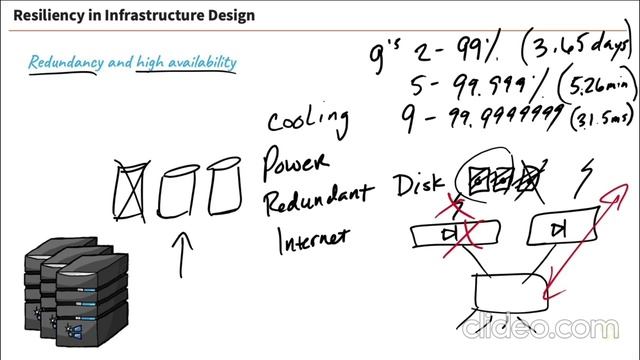 Resiliency in Infrastructure Design
Redundancy and high availability
9's 2 - 99% (3.65 days)
5 - 99.999% (5.26 min)
9 - 99.9999999 (31.5ms)
Cooling
Power
Redundant
Internet
Disk
clideo.com